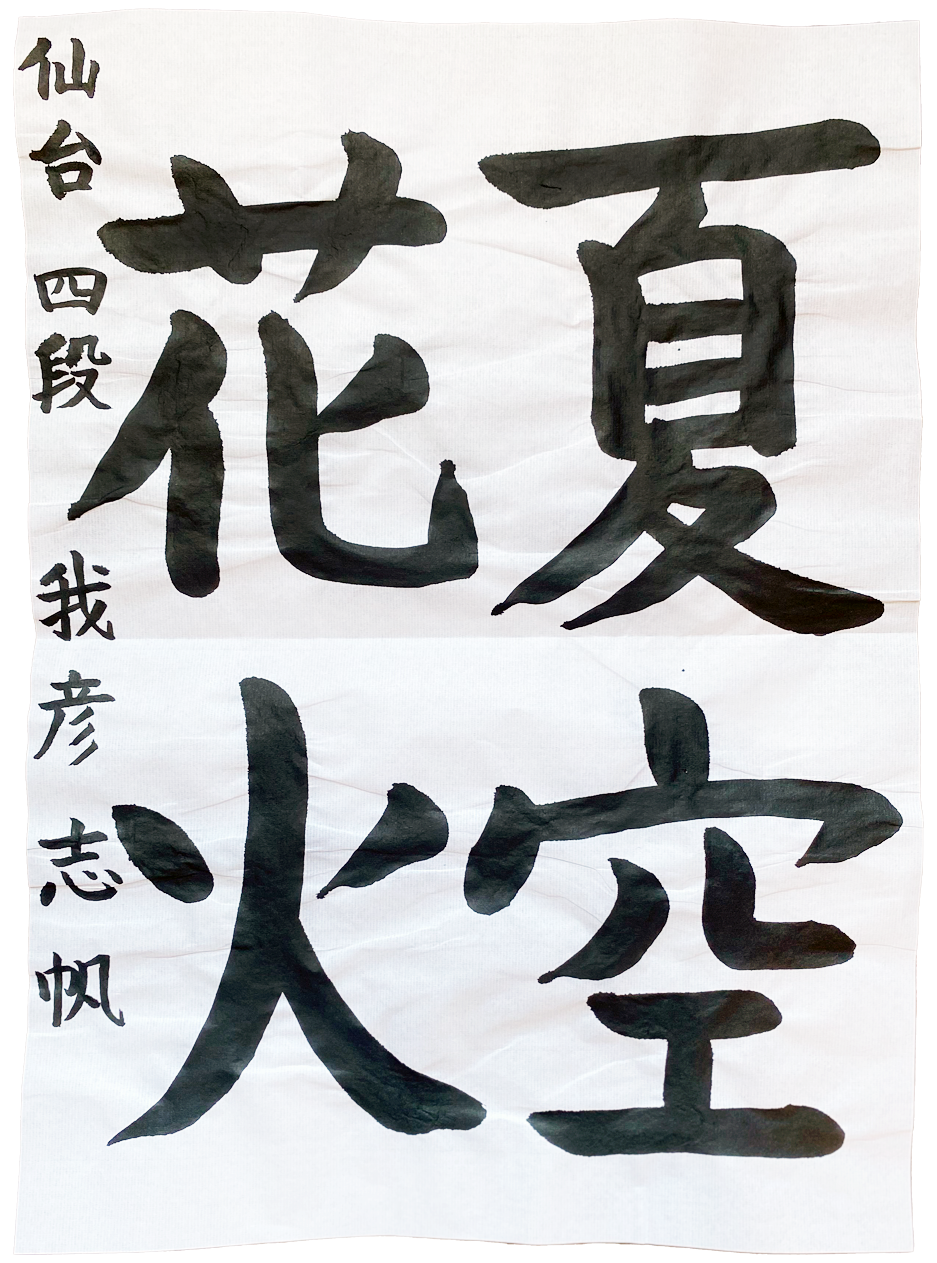 夏空
花火
仙台 四段 我彦 志帆